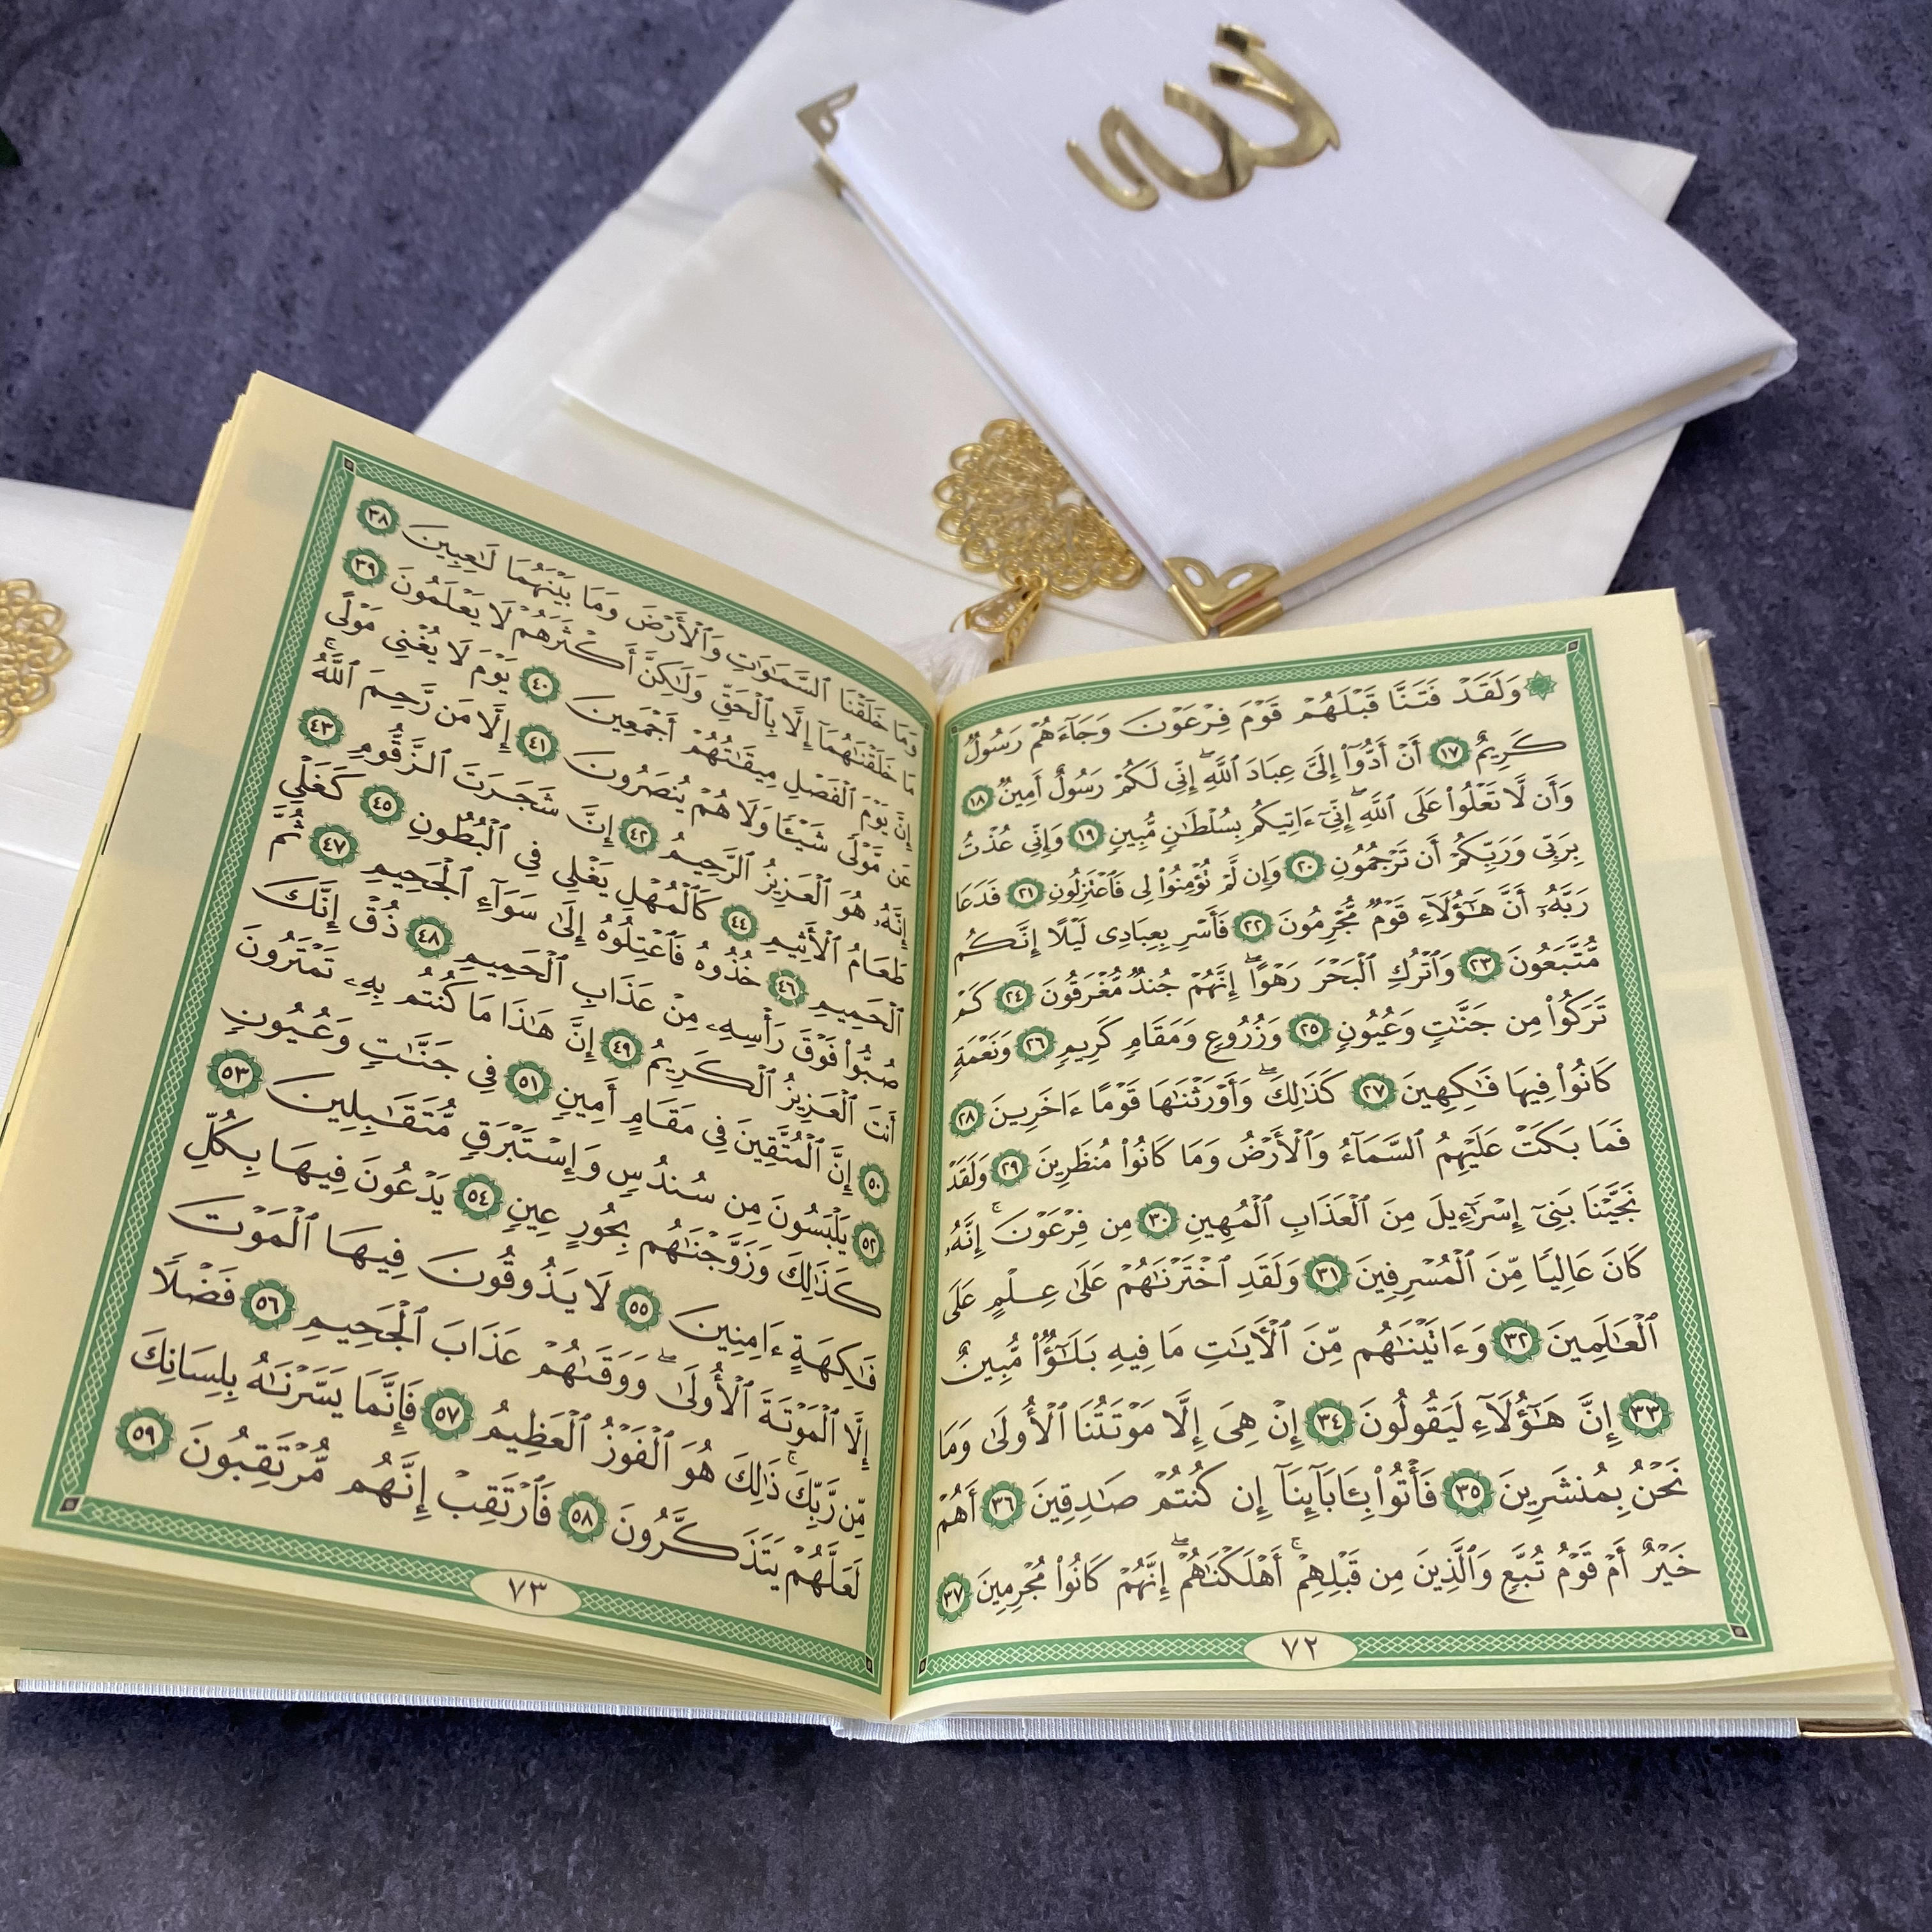 الله
۞ وَلَقَدْ فَتَنَّا قَبْلَهُمْ قَوْمَ فِرْعَوْنَ وَجَآءَهُمْ رَسُولٌ
كَرِيمٌ ١٧ أَنْ أَدُّوٓا۟ إِلَىَّ عِبَادَ ٱللَّهِ ۖ إِنِّى لَكُمْ رَسُولٌ أَمِينٌ ١٨
وَأَن لَّا تَعْلُوا۟ عَلَى ٱللَّهِ ۖ إِنِّىٓ ءَاتِيكُم بِسُلْطَـٰنٍ مُّبِينٍ ١٩ وَإِنِّى عُذْتُ
بِرَبِّى وَرَبِّكُمْ أَن تَرْجُمُونِ ٢٠ وَإِن لَّمْ تُؤْمِنُوا۟ لِى فَٱعْتَزِلُونِ ٢١ فَدَعَا
رَبَّهُۥٓ أَنَّ هَـٰٓؤُلَآءِ قَوْمٌ مُّجْرِمُونَ ٢٢ فَأَسْرِ بِعِبَادِى لَيْلًا إِنَّكُم
مُّتَّبَعُونَ ٢٣ وَٱتْرُكِ ٱلْبَحْرَ رَهْوًا ۖ إِنَّهُمْ جُندٌ مُّغْرَقُونَ ٢٤ كَمْ
تَرَكُوا۟ مِن جَنَّـٰتٍ وَعُيُونٍ ٢٥ وَزُرُوعٍ وَمَقَامٍ كَرِيمٍ ٢٦ وَنَعْمَةٍ
كَانُوا۟ فِيهَا فَـٰكِهِينَ ٢٧ كَذَٰلِكَ ۖ وَأَوْرَثْنَـٰهَا قَوْمًا ءَاخَرِينَ ٢٨
فَمَا بَكَتْ عَلَيْهِمُ ٱلسَّمَآءُ وَٱلْأَرْضُ وَمَا كَانُوا۟ مُنظَرِينَ ٢٩ وَلَقَدْ
نَجَّيْنَا بَنِىٓ إِسْرَٰٓءِيلَ مِنَ ٱلْعَذَابِ ٱلْمُهِينِ ٣٠ مِن فِرْعَوْنَ ۚ إِنَّهُۥ
كَانَ عَالِيًا مِّنَ ٱلْمُسْرِفِينَ ٣١ وَلَقَدِ ٱخْتَرْنَـٰهُمْ عَلَىٰ عِلْمٍ عَلَى
ٱلْعَـٰلَمِينَ ٣٢ وَءَاتَيْنَـٰهُم مِّنَ ٱلْـَٔايَـٰتِ مَا فِيهِ بَلَـٰٓؤٌا۟ مُّبِينٌ
٣٣ إِنَّ هَـٰٓؤُلَآءِ لَيَقُولُونَ ٣٤ إِنْ هِىَ إِلَّا مَوْتَتُنَا ٱلْأُولَىٰ وَمَا
نَحْنُ بِمُنشَرِينَ ٣٥ فَأْتُوا۟ بِـَٔابَآئِنَآ إِن كُنتُمْ صَـٰدِقِينَ ٣٦ أَهُمْ
خَيْرٌ أَمْ قَوْمُ تُبَّعٍ وَٱلَّذِينَ مِن قَبْلِهِمْ ۚ أَهْلَكْنَـٰهُمْ ۖ إِنَّهُمْ كَانُوا۟ مُجْرِمِينَ ٣٧
٧٢
وَمَا خَلَقْنَا ٱلسَّمَـٰوَٰتِ وَٱلْأَرْضَ وَمَا بَيْنَهُمَا لَـٰعِبِينَ ٣٨
مَا خَلَقْنَـٰهُمَآ إِلَّا بِٱلْحَقِّ وَلَـٰكِنَّ أَكْثَرَهُمْ لَا يَعْلَمُونَ ٣٩
إِنَّ يَوْمَ ٱلْفَصْلِ مِيقَـٰتُهُمْ أَجْمَعِينَ ٤٠ يَوْمَ لَا يُغْنِى مَوْلًى
عَن مَّوْلًى شَيْـًٔا وَلَا هُمْ يُنصَرُونَ ٤١ إِلَّا مَن رَّحِمَ ٱللَّهُ ۚ
إِنَّهُۥ هُوَ ٱلْعَزِيزُ ٱلرَّحِيمُ ٤٢ إِنَّ شَجَرَتَ ٱلزَّقُّومِ ٤٣
طَعَامُ ٱلْأَثِيمِ ٤٤ كَٱلْمُهْلِ يَغْلِى فِى ٱلْبُطُونِ ٤٥ كَغَلْىِ
ٱلْحَمِيمِ ٤٦ خُذُوهُ فَٱعْتِلُوهُ إِلَىٰ سَوَآءِ ٱلْجَحِيمِ ٤٧ ثُمَّ
صُبُّوا۟ فَوْقَ رَأْسِهِۦ مِنْ عَذَابِ ٱلْحَمِيمِ ٤٨ ذُقْ إِنَّكَ
أَنتَ ٱلْعَزِيزُ ٱلْكَرِيمُ ٤٩ إِنَّ هَـٰذَا مَا كُنتُم بِهِۦ تَمْتَرُونَ
٥٠ إِنَّ ٱلْمُتَّقِينَ فِى مَقَامٍ أَمِينٍ ٥١ فِى جَنَّـٰتٍ وَعُيُونٍ
٥٢ يَلْبَسُونَ مِن سُندُسٍ وَإِسْتَبْرَقٍ مُّتَقَـٰبِلِينَ ٥٣
كَذَٰلِكَ وَزَوَّجْنَـٰهُم بِحُورٍ عِينٍ ٥٤ يَدْعُونَ فِيهَا بِكُلِّ
فَـٰكِهَةٍ ءَامِنِينَ ٥٥ لَا يَذُوقُونَ فِيهَا ٱلْمَوْتَ
إِلَّا ٱلْمَوْتَةَ ٱلْأُولَىٰ ۖ وَوَقَىٰهُمْ عَذَابَ ٱلْجَحِيمِ ٥٦ فَضْلًا
مِّن رَّبِّكَ ۚ ذَٰلِكَ هُوَ ٱلْفَوْزُ ٱلْعَظِيمُ ٥٧ فَإِنَّمَا يَسَّرْنَـٰهُ بِلِسَانِكَ
لَعَلَّهُمْ يَتَذَكَّرُونَ ٥٨ فَٱرْتَقِبْ إِنَّهُم مُّرْتَقِبُونَ ٥٩
٧٣